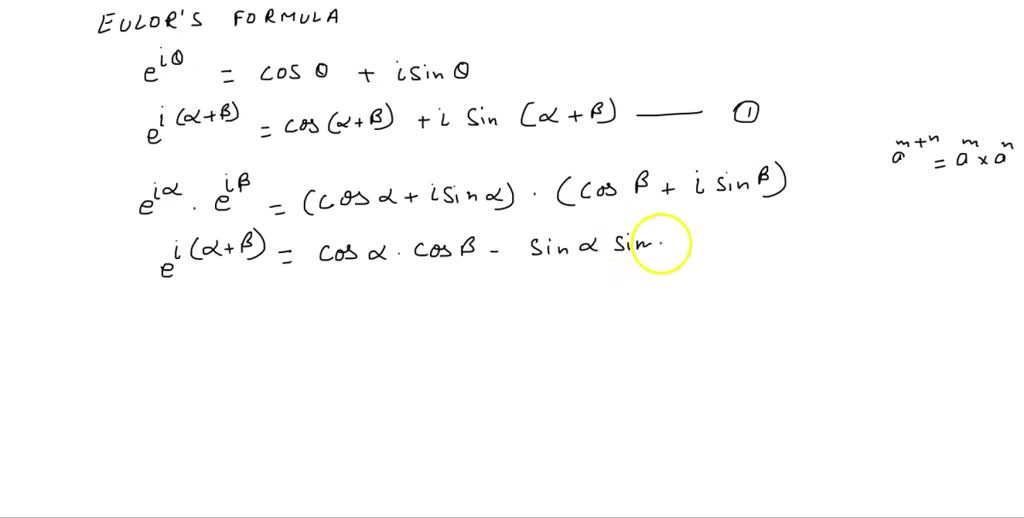 EULOR'S FORMULA
e^{iθ} = cos θ + i sin θ
e^{i(α+β)} = cos (α+β) + i sin (α+β) —— ①
a^{m+n} = a^m × a^n
e^{iα} . e^{iβ} = (cos α + i sin α) · (cos β + i sin β)
e^{i(α+β)} = cos α . cos β - sin α sin.